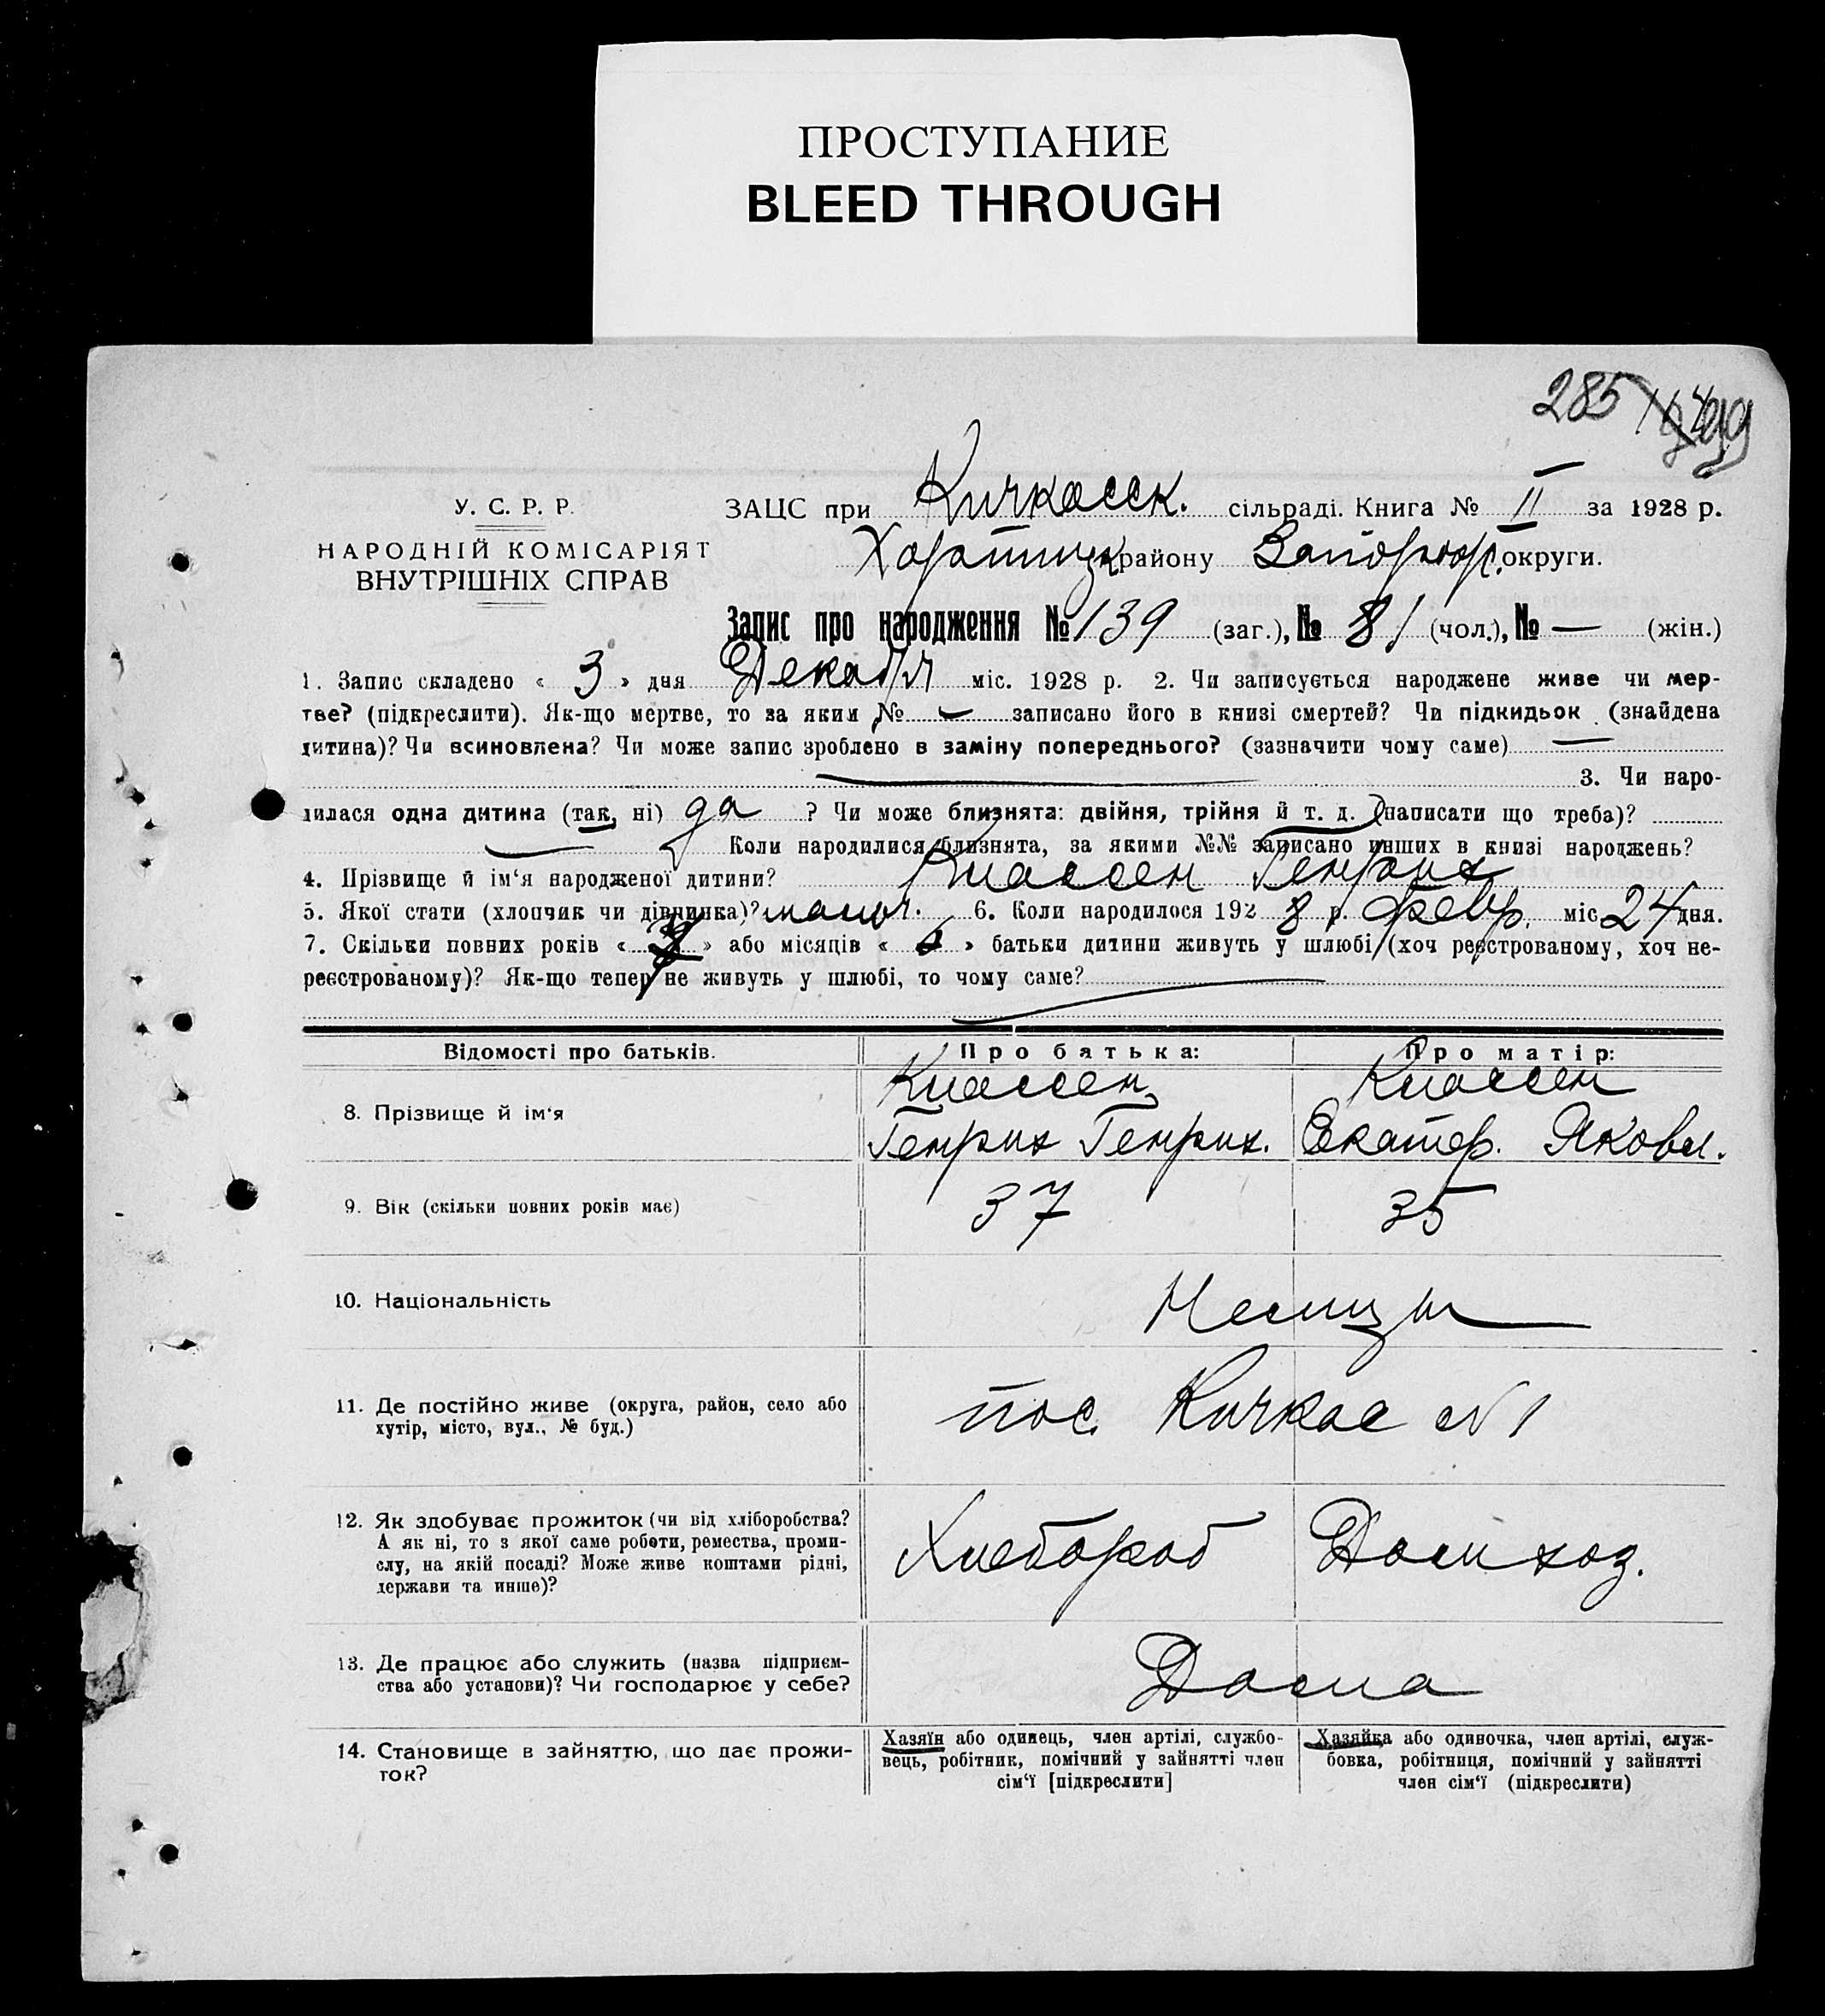 ПРОСТУПАНИЕ
BLEED THROUGH
285
У. С. Р. Р.
НАРОДНІЙ КОМІСАРІЯТ
ВНУТРІШНІХ СПРАВ
ЗАЦС при Кичкасск. сільраді. Книга № II за 1928 р.
Хортицк району Запорож. округи.
Запис про народження № 139 (заг.), № 81 (чол.), № — (жін.)
1. Запис складено « 3 » дня Декабря міс. 1928 р. 2. Чи записується народжене живе чи мер-
тве? (підкреслити). Як-що мертве, то за яким № — записано його в книзі смертей? Чи підкидьок (знайдена
дитина)? Чи всиновлена? Чи може запис зроблено в заміну попереднього? (зазначити чому саме) —
3. Чи наро-
дилася одна дитина (так, ні) да ? Чи може близнята: двійня, трійня й т. д. (написати що треба)?
Коли народилися близнята, за якими №№ записано инших в книзі народжень?
4. Прізвище й ім‘я народженої дитини? Классен Генрих
5. Якої стати (хлопчик чи дівчинка)? мальч. 6. Коли народилося 192 8 р. февр. міс. 24 дня.
7. Скільки повних років « » або місяців « » батьки дитини живуть у шлюбі (хоч реєстрованому, хоч не-
реєстрованому)? Як-що тепер не живуть у шлюбі, то чому саме?
Відомості про батьків. Про батька: Про матір:
8. Прізвище й ім‘я
Классен Генрих Генрих.
Классен Екатер. Яковл.
9. Вік (скільки повних років має) 37 35
10. Національність Немцы
11. Де постійно живе (округа, район, село або
хутір, місто, вул., № буд.)
пос. Кичкас №1
12. Як здобуває прожиток (чи від хліборобства?
А як ні, то з якої саме роботи, ремества, проми-
слу, на якій посаді? Може живе коштами рідні,
держави та инше)?
Хлебороб Дом хоз.
13. Де працює або служить (назва підприєм-
ства або установи)? Чи господарює у себе?
Дома
14. Становище в зайняттю, що дає прожи-
ток?
Хазяїн або одинець, член артілі, службо-
вець, робітник, помічний у зайнятті член
сім‘ї [підкреслити]
Хазяйка або одиночка, член артілі, служ-
бовка, робітниця, помічний у зайнятті
член сім‘ї (підкреслити)